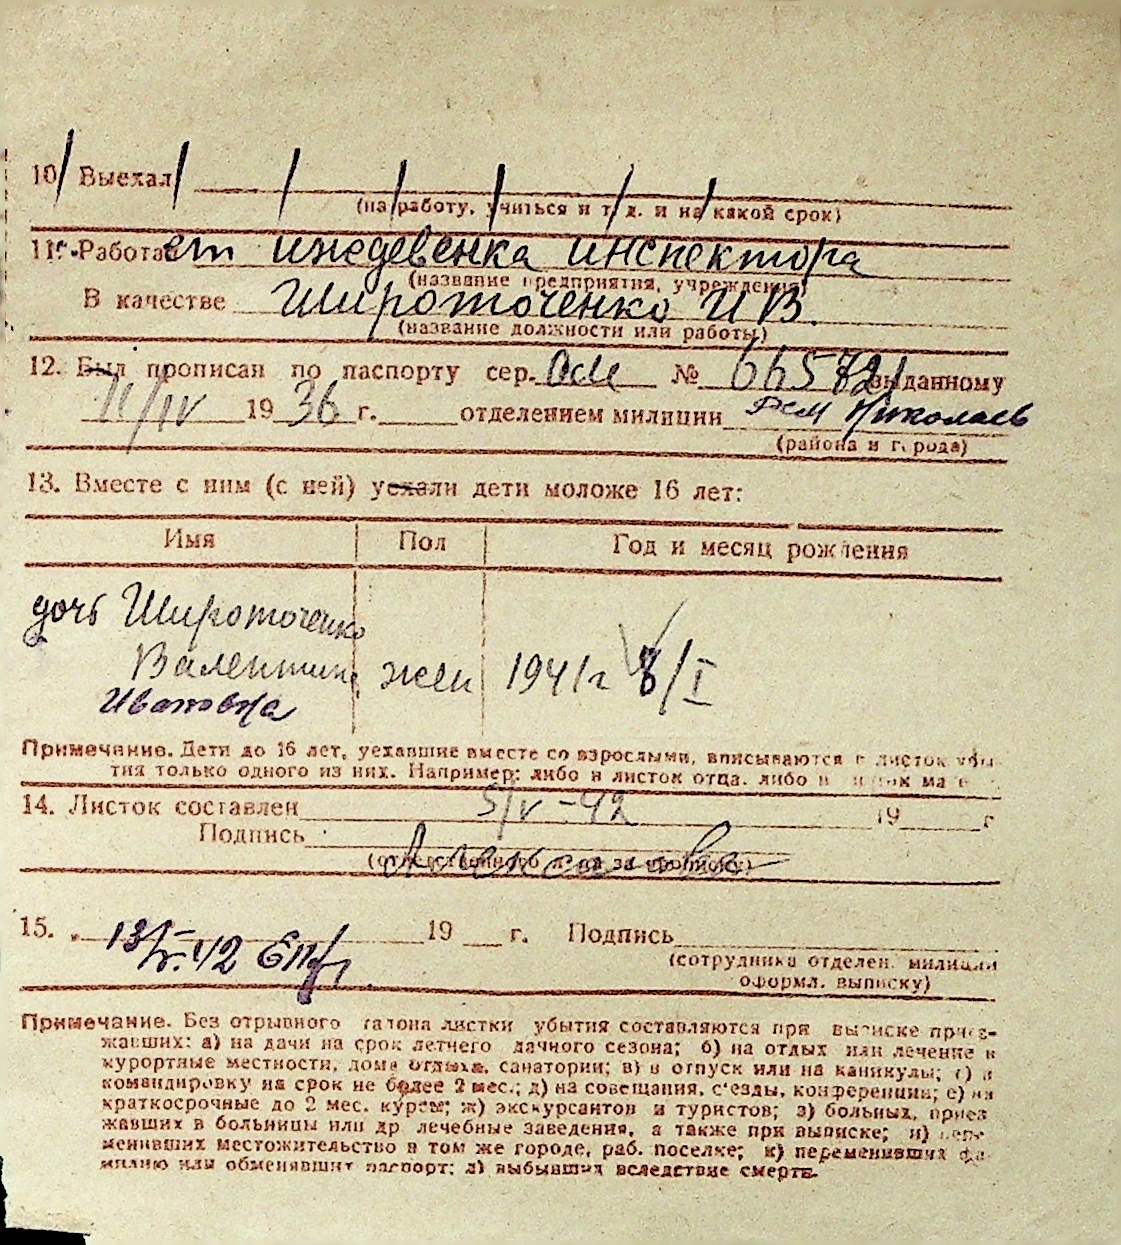 10 Выехал
(на работу, учиться и т. д. и на какой срок)
11. Работает иждевенка инспектора
(название предприятия, учреждения)
В качестве Широточенко И В.
(название должности или работы)
12. Был прописан по паспорту сер. № 665721 выданному
11/IV 1936 г. отделением милиции Николаев
(района и города)
13. Вместе с ним (с ней) уехали дети моложе 16 лет:
Имя Пол Год и месяц рождения
дочь Широточенко
Валентина жен 1941 г 8/I
Ивановна
Примечание. Дети до 16 лет, уехавшие вместе со взрослыми, вписываются в листок убы-
тия только одного из них. Например: либо в листок отца, либо в листок мате
14. Листок составлен 5/V-42 19 г
Подпись
(ответственного за прописку)
15. 13/V.42 19 г. Подпись
(сотрудника отделен. милиции
оформл. выписку)
Примечание. Без отрывного талона листки убытия составляются при выписке приез-
жавших: а) на дачи на срок летнего дачного сезона; б) на отдых или лечение в
курортные местности, дома отдыха, санатории; в) в отпуск или на каникулы; г) в
командировку на срок не более 2 мес.; д) на совещания, с'езды, конференции; е) на
краткосрочные до 2 мес. курсы; ж) экскурсантов и туристов; з) больных, приез
жавших в больницы или др лечебные заведения, а также при выписке; и) пере-
менивших местожительство в том же городе, раб. поселке; к) переменивших фа-
милию или обменявших паспорт; л) выбывших вследствие смерти.